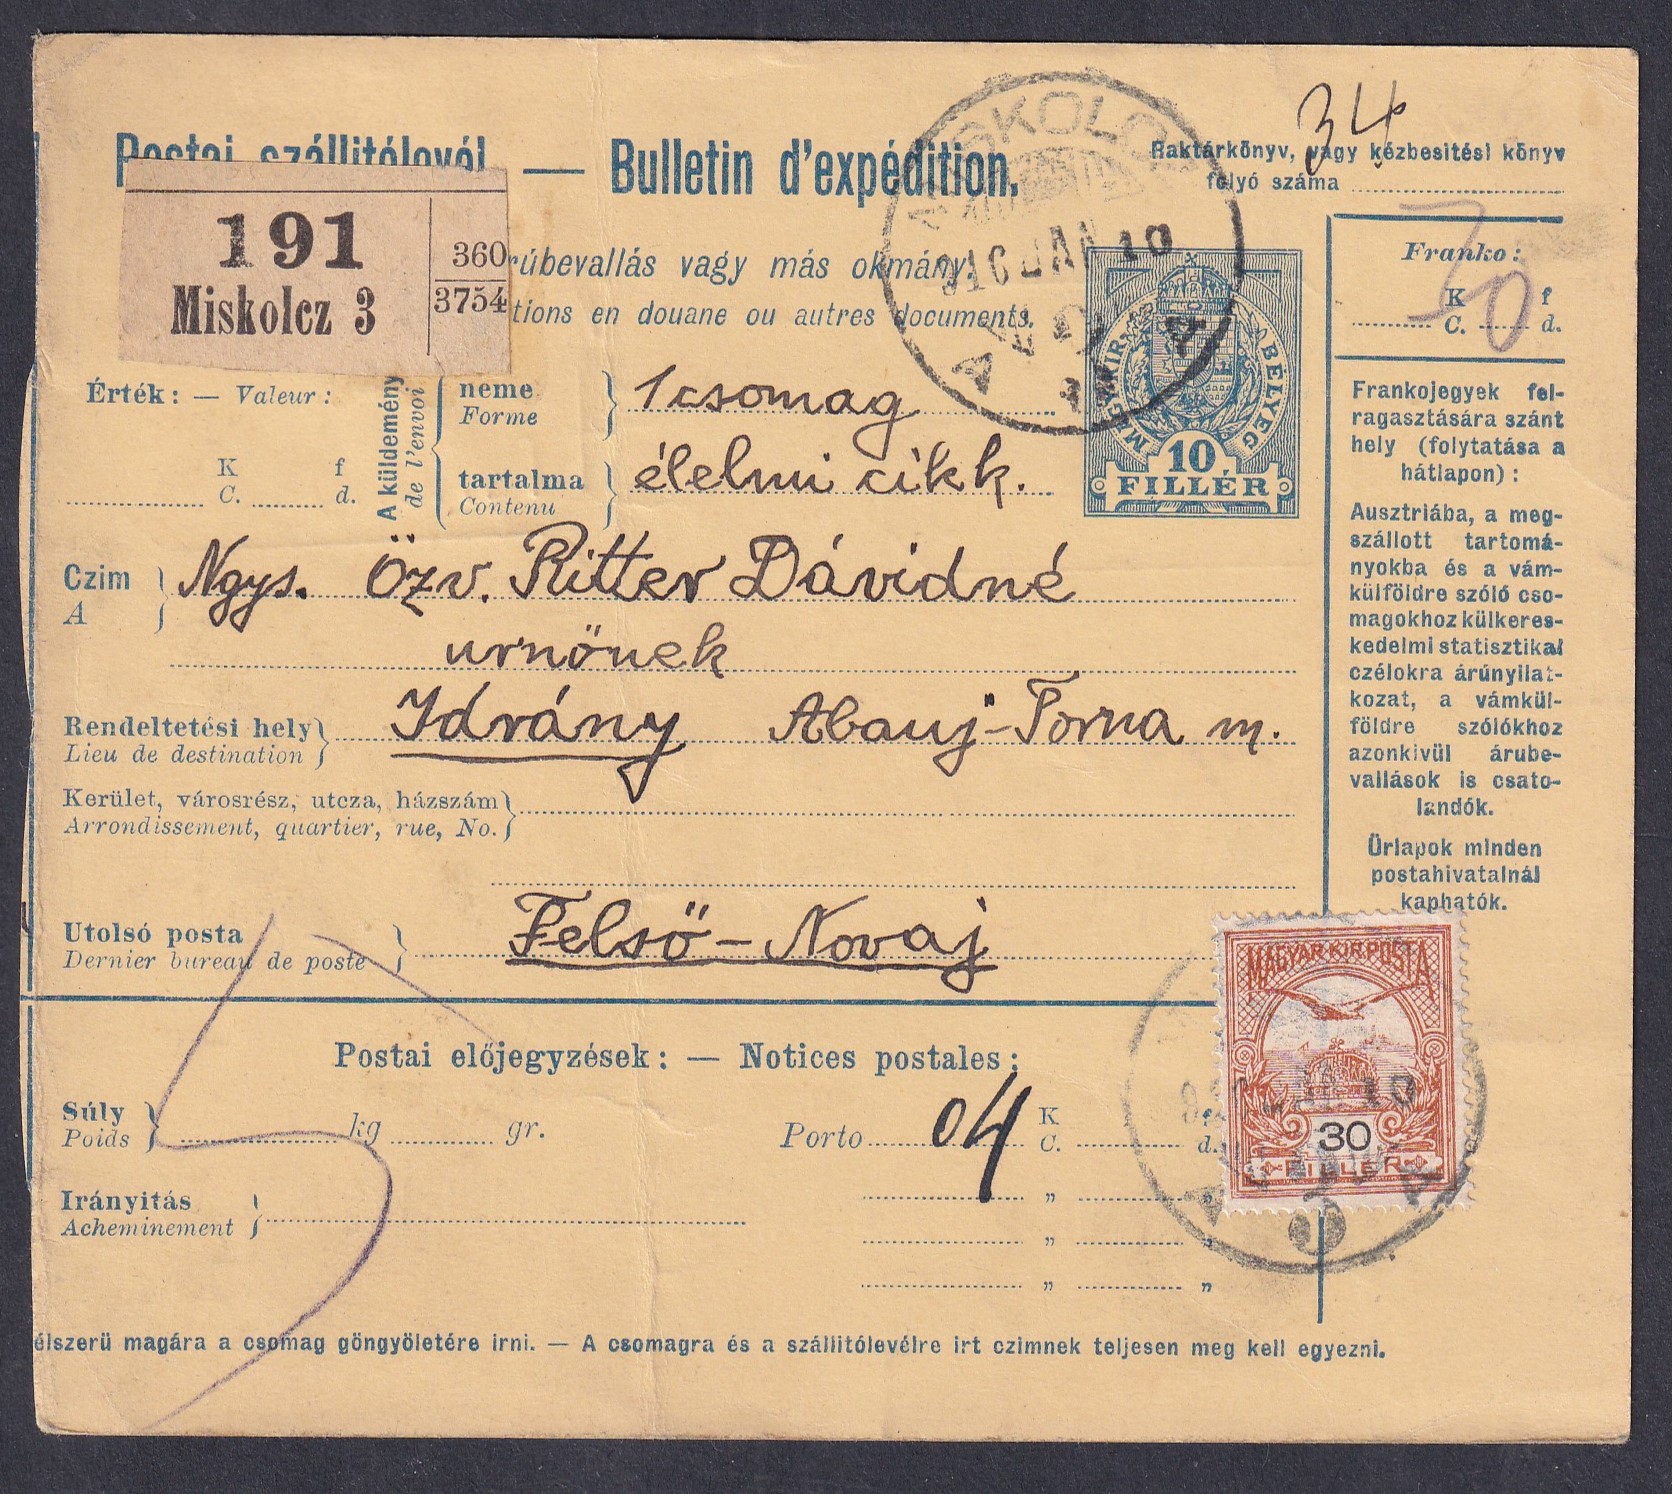 34
Postai szállitólevél — Bulletin d'expédition.
Raktárkönyv, vagy kézbesitési könyv
folyó száma
191
Miskolcz 3
360
3754
rúbevallás vagy más okmány.
tions en douane ou autres documents.
MISKOLCZ
916 JAN 10
Franko:
K f
C. d.
Érték: — Valeur:
K f
C. d.
A küldemény
de l'envoi
neme
Forme
1 csomag
tartalma
Contenu
élelmi cikk.
MAGY. KIR. BÉLYEG
10
FILLÉR
Czim
A
Ngys. Özv. Ritter Dávidné
urnönek
Rendeltetési hely
Lieu de destination
Idrány Abauj-Torna m.
Kerület, városrész, utcza, házszám
Arrondissement, quartier, rue, No.
Utolsó posta
Dernier bureau de poste
Felső-Novaj
Frankojegyek fel-
ragasztására szánt
hely (folytatása a
hátlapon):
Ausztriába, a meg-
szállott tartomá-
nyokba és a vám-
külföldre szóló cso-
magokhoz külkeres-
kedelmi statisztikai
czélokra árúnyilat-
kozat, a vámkül-
földre szólókhoz
azonkivül árube-
vallások is csato-
landók.
Ürlapok minden
postahivatalnál
kaphatók.
MAGYAR KIR. POSTA
30
FILLÉR
Postai előjegyzések: — Notices postales:
Súly
Poids
5
kg gr.
Porto 04 K f
C. d.
Irányitás
Acheminement
" "
" "
" "
élszerü magára a csomag göngyöletére irni. — A csomagra és a szállitólevélre irt czimnek teljesen meg kell egyezni.